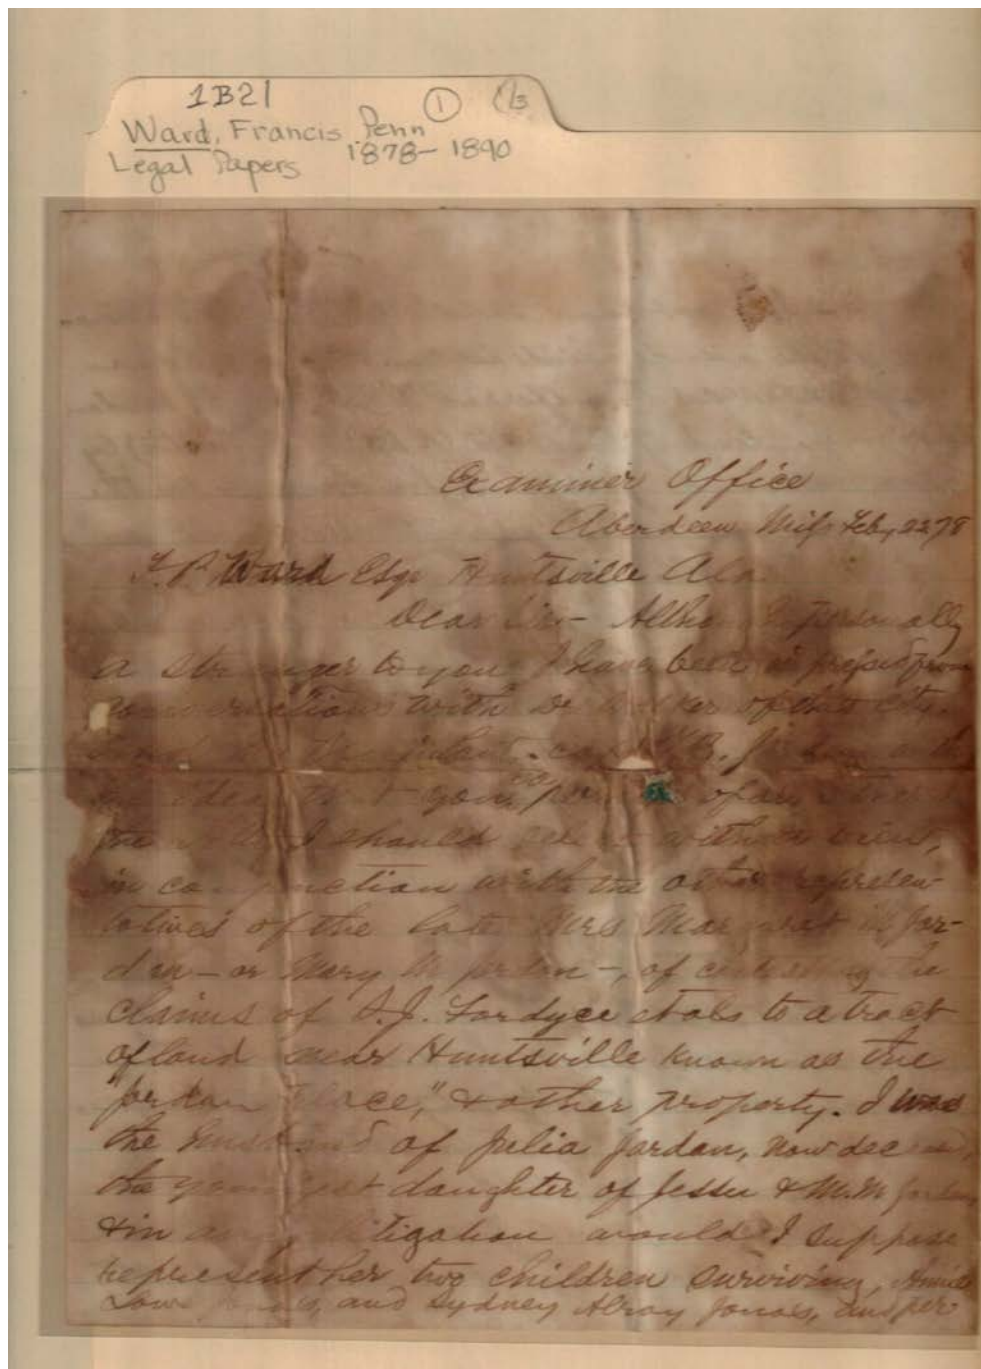 1B21
① (1/3
Ward, Francis Penn
Legal Papers 1878-1890
Examiner Office
Aberdeen Miss Feb, 22 78
F. P. Ward Esqr Huntsville Ala
Dear Sir - Altho personally
a stranger to you I have been
conversations with of this city
you of an
I should with a view,
in conjunction with the other represen
tatives of the late Mrs Margaret M Jor-
dan - or Mary M Jordan -, of contesting the
claims of A. J. Fordyce et als to a tract
of land near Huntsville known as the
"Jordan Place," & other property. I was
the husband of Julia Jordan, now deceased,
the youngest daughter of Jesse & M. M Jordan
& in any litigation would I suppose
represent her two children surviving, Annie
Lowe Jonas, and Sydney Alroy Jonas, and per